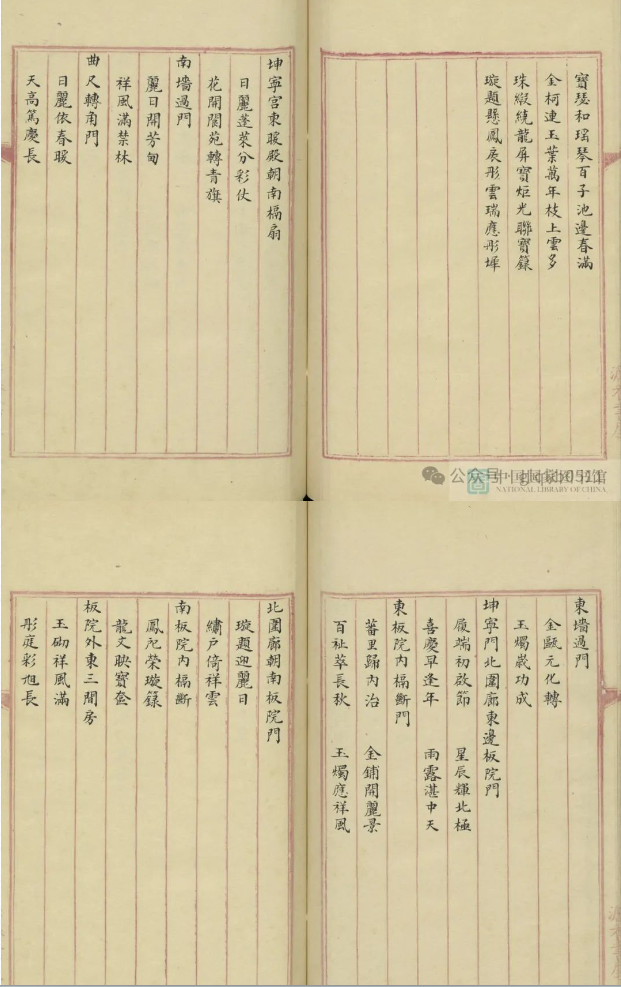 寶瑟和瑤琴百子池邊春滿
金柯連玉葉萬年枝上雲多
珠繞龍屏寶炬光聯寶籙
璇題懸鳳扆彤雲瑞應彤墀
坤寧宮東暖殿朝南槅扇
日麗蓬萊分彩仗
花開閬苑轉青旗
南墻過門
麗日開芳甸
祥風滿禁林
曲尺轉角門
日麗依春暖
天高篤慶長
公众号
中国国家图书馆
NATIONAL LIBRARY OF CHINA
東墻過門
金甌元化轉
玉燭歲功成
坤寧門北圍廊東邊板院門
履端初啟節 星辰輝北極
喜慶早逢年 雨露湛中天
東板院內槅斷門
蕃里歸內治 金鋪開麗景
百祉萃長秋 玉燭應祥風
北圍廊朝南板院門
璇題迎麗日
繡戶倚祥雲
南板院內槅斷
鳳紀榮璇籙
龍文映寶奩
板院外東三間房
玉砌祥風滿
彤庭彩旭長